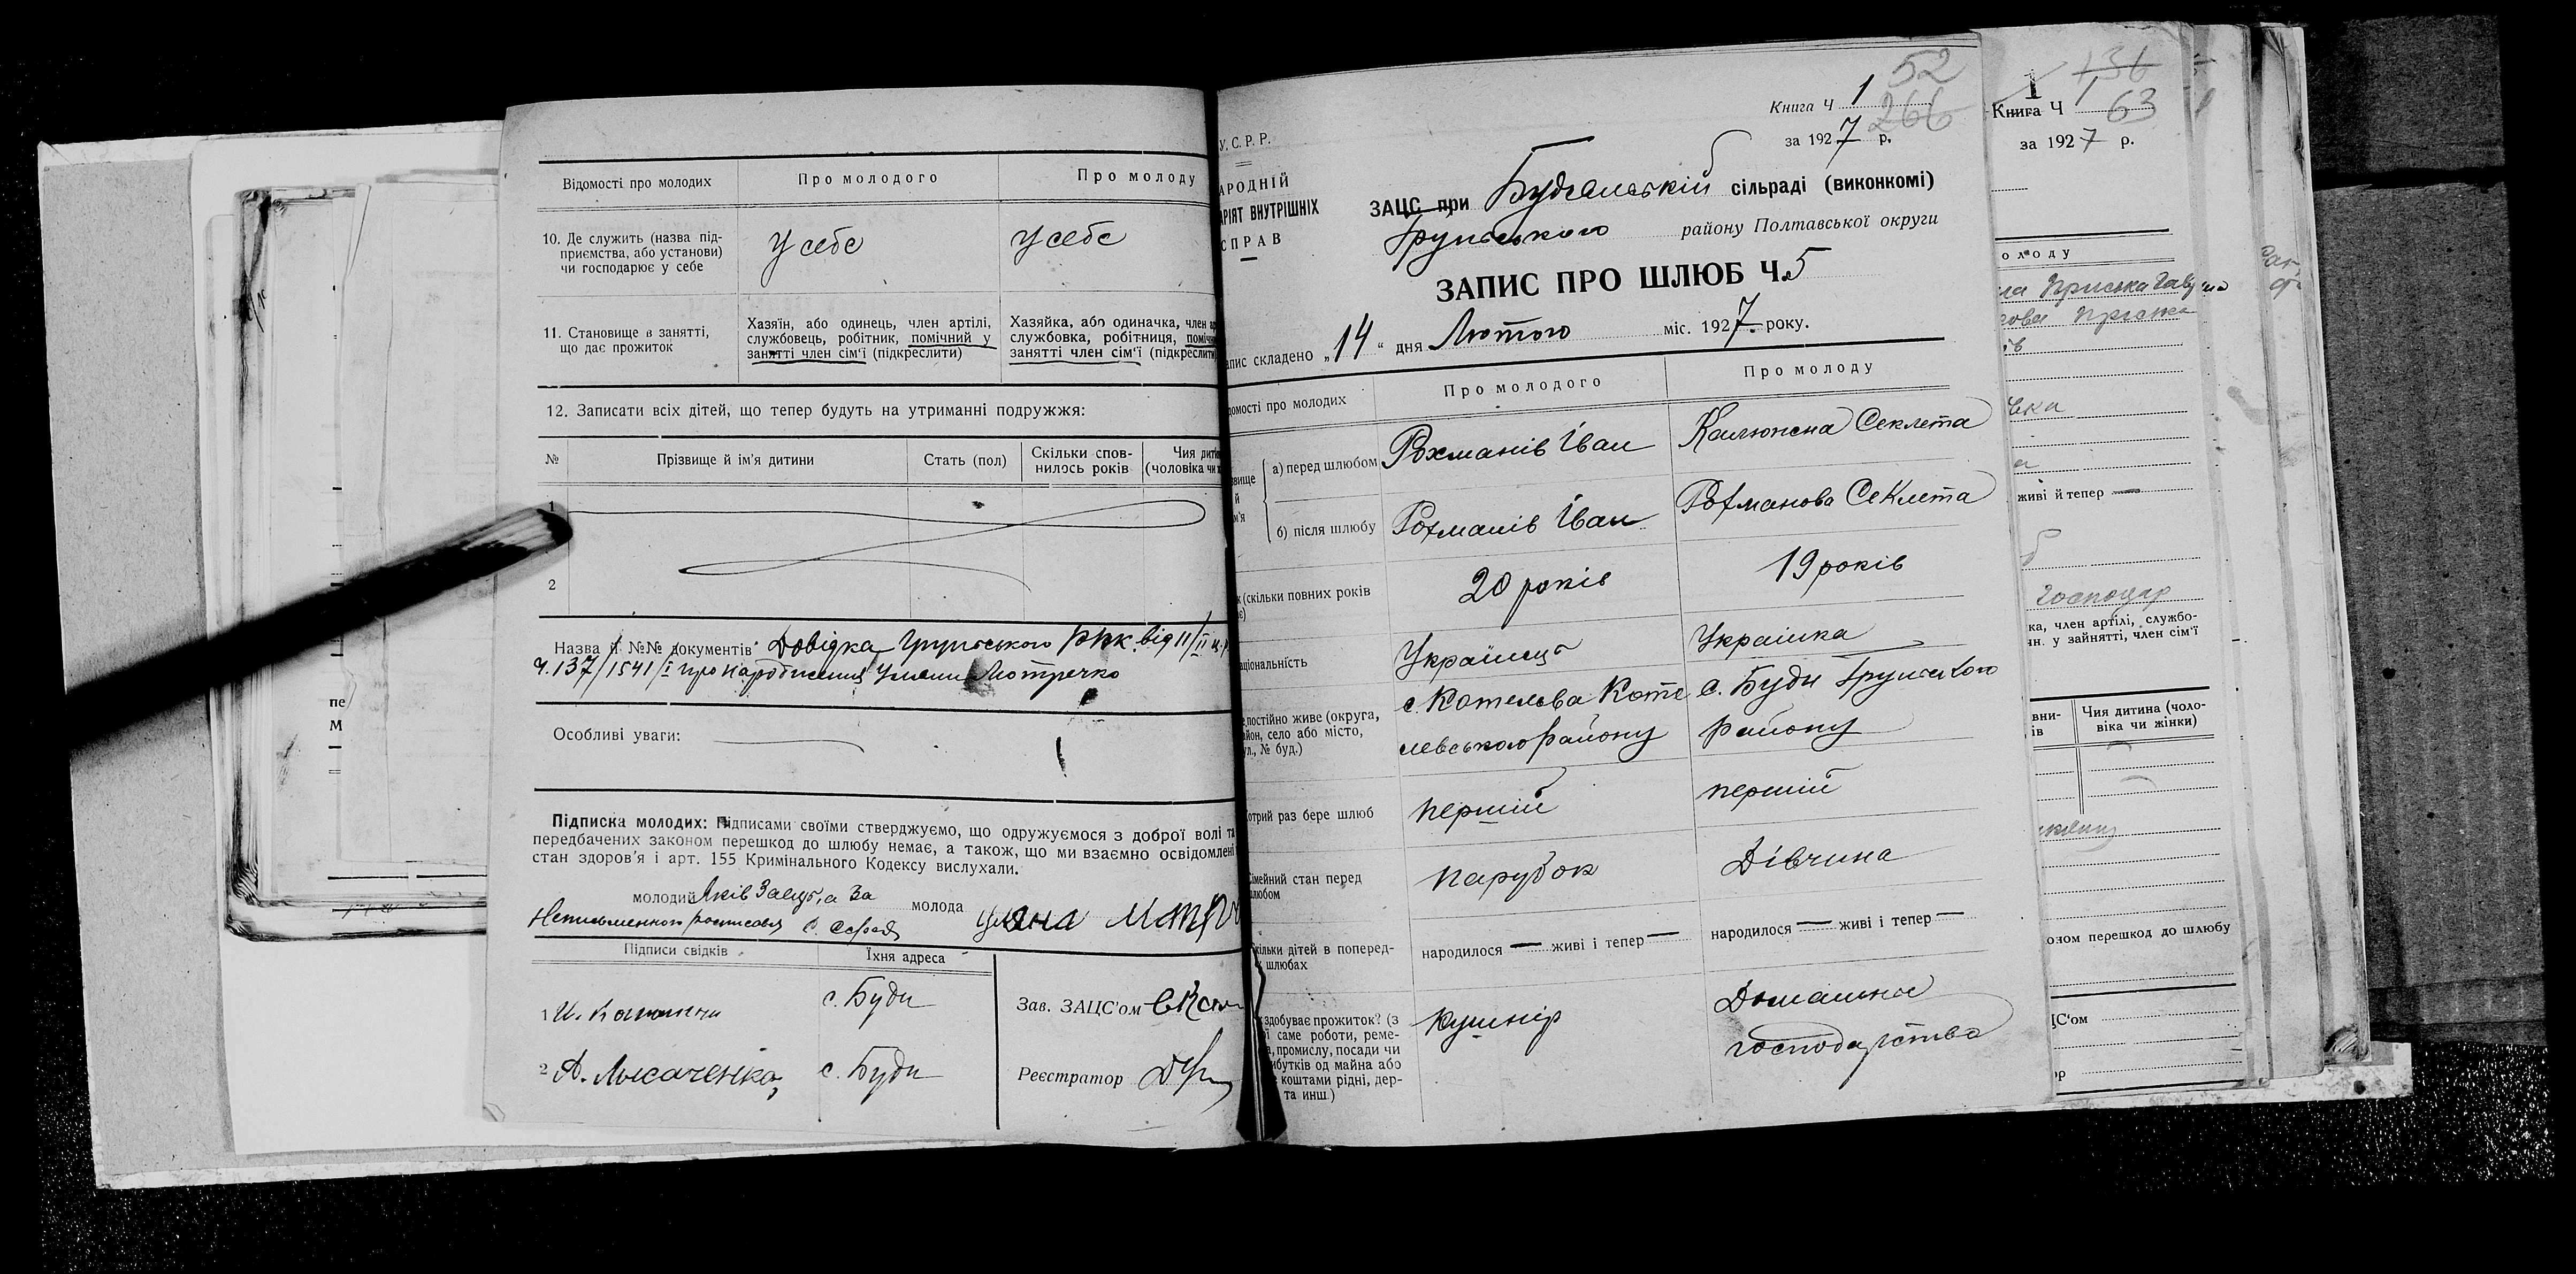 Відомості про молодих
Про молодого
Про молоду
10. Де служить (назва під-
приємства, або установи)
чи господарює у себе
У себе
У себе
11. Становище в занятті,
що дає прожиток
Хазяїн, або одинець, член артілі,
службовець, робітник, помічний у
занятті член сім'ї (підкреслити)
Хазяйка, або одиначка, член
службовка, робітниця,
занятті член сім'ї (підкреслити)
12. Записати всіх дітей, що тепер будуть на утриманні подружжя:
№
Прізвище й ім'я дитини
Стать (пол)
Скільки спов-
нилось років
Чия
(чоловіка чи
1
2
Назва й №№ документів: Довідка Грунського РВК від 11/II
ч. 137/1541/I про народження Уляни
Особливі уваги:
Підписка молодих: Підписами своїми стверджуємо, що одружуємося з доброї волі та
передбачених законом перешкод до шлюбу немає, а також, що ми взаємно освідомлені
стан здоров'я і арт. 155 Кримінального Кодексу вислухали.
молодий Яків а за
Неписьменного росписався
молода Уляна
Підписи свідків
Їхня адреса
1
с. Буди
Зав. ЗАЦС'ом
2 А. Лысаченко
с. Буди
Реєстратор
52
266
Книга Ч 1
за 1927 р.
У.С.Р.Р.
АРОДНІЙ
АРІЯТ ВНУТРІШНІХ
СПРАВ
ЗАЦС при сільраді (виконкомі)
Грунського району Полтавської округи
ЗАПИС ПРО ШЛЮБ Ч. 5
апис складено „14“ дня Лютого міс. 1927 року.
домості про молодих
Про молодого
Про молоду
звище
й
м'я
а) перед шлюбом
Рохманів Іван
Калюжна Секлета
б) після шлюбу
Рохманів Іван
Рохманова Секлета
к (скільки повних років
20 років
19 років
аціональність
Українець
Українка
е постійно живе (округа,
айон, село або місто,
ул., № буд.)
с. Котельва Коте
левського району
с. Буди Грунського
району
отрий раз бере шлюб
перший
перший
імейний стан перед
шлюбом
парубок
Дівчина
кільки дітей в поперед-
х шлюбах
народилося — живі і тепер —
народилося — живі і тепер —
здобуває прожиток? (з
ї саме роботи, реме-
а, промислу, посади чи
ибутків од майна або
коштами рідні, дер-
та инш.)
кушнір
Домашнє
господарство
1
136
63
Книга Ч
за 1927 р.
олоду
Приська
живі й тепер —
господар
ка, член артілі, службо-
ян. у зайнятті, член сім'ї
вни-
ів
Чия дитина (чоло-
віка чи жінки)
оном перешкод до шлюбу
ЦС'ом
ор
пе
М